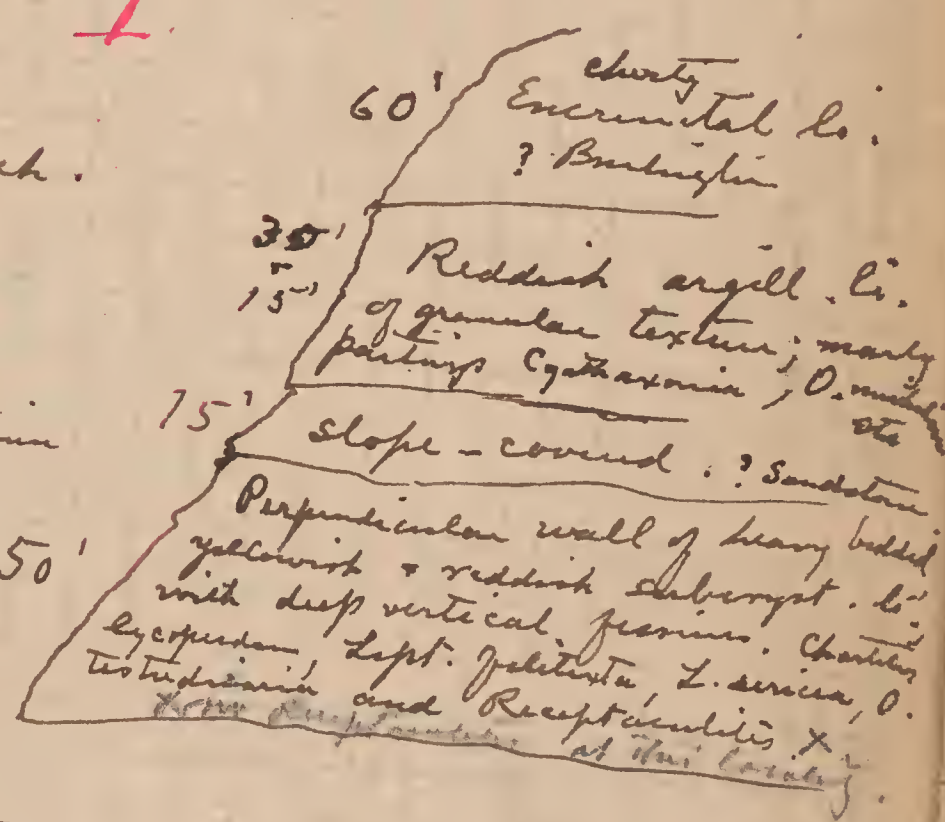 ch.
60'
cherty
Encrinital ls.
? Burlington
35'
15'
Reddish argill. ls.
of granular texture; marly
partings Cyathaxonia, O.
etc
15'
Slope - covered. ? Sandstone
50'
Perpendicular wall of heavy bedded
yellowish & reddish subcryst. ls.
with deep vertical fissures. Chaetetes
lycoperdon, Lept. filitexta, L. sericea, O.
testudinaria and Receptaculites X
at this locality.